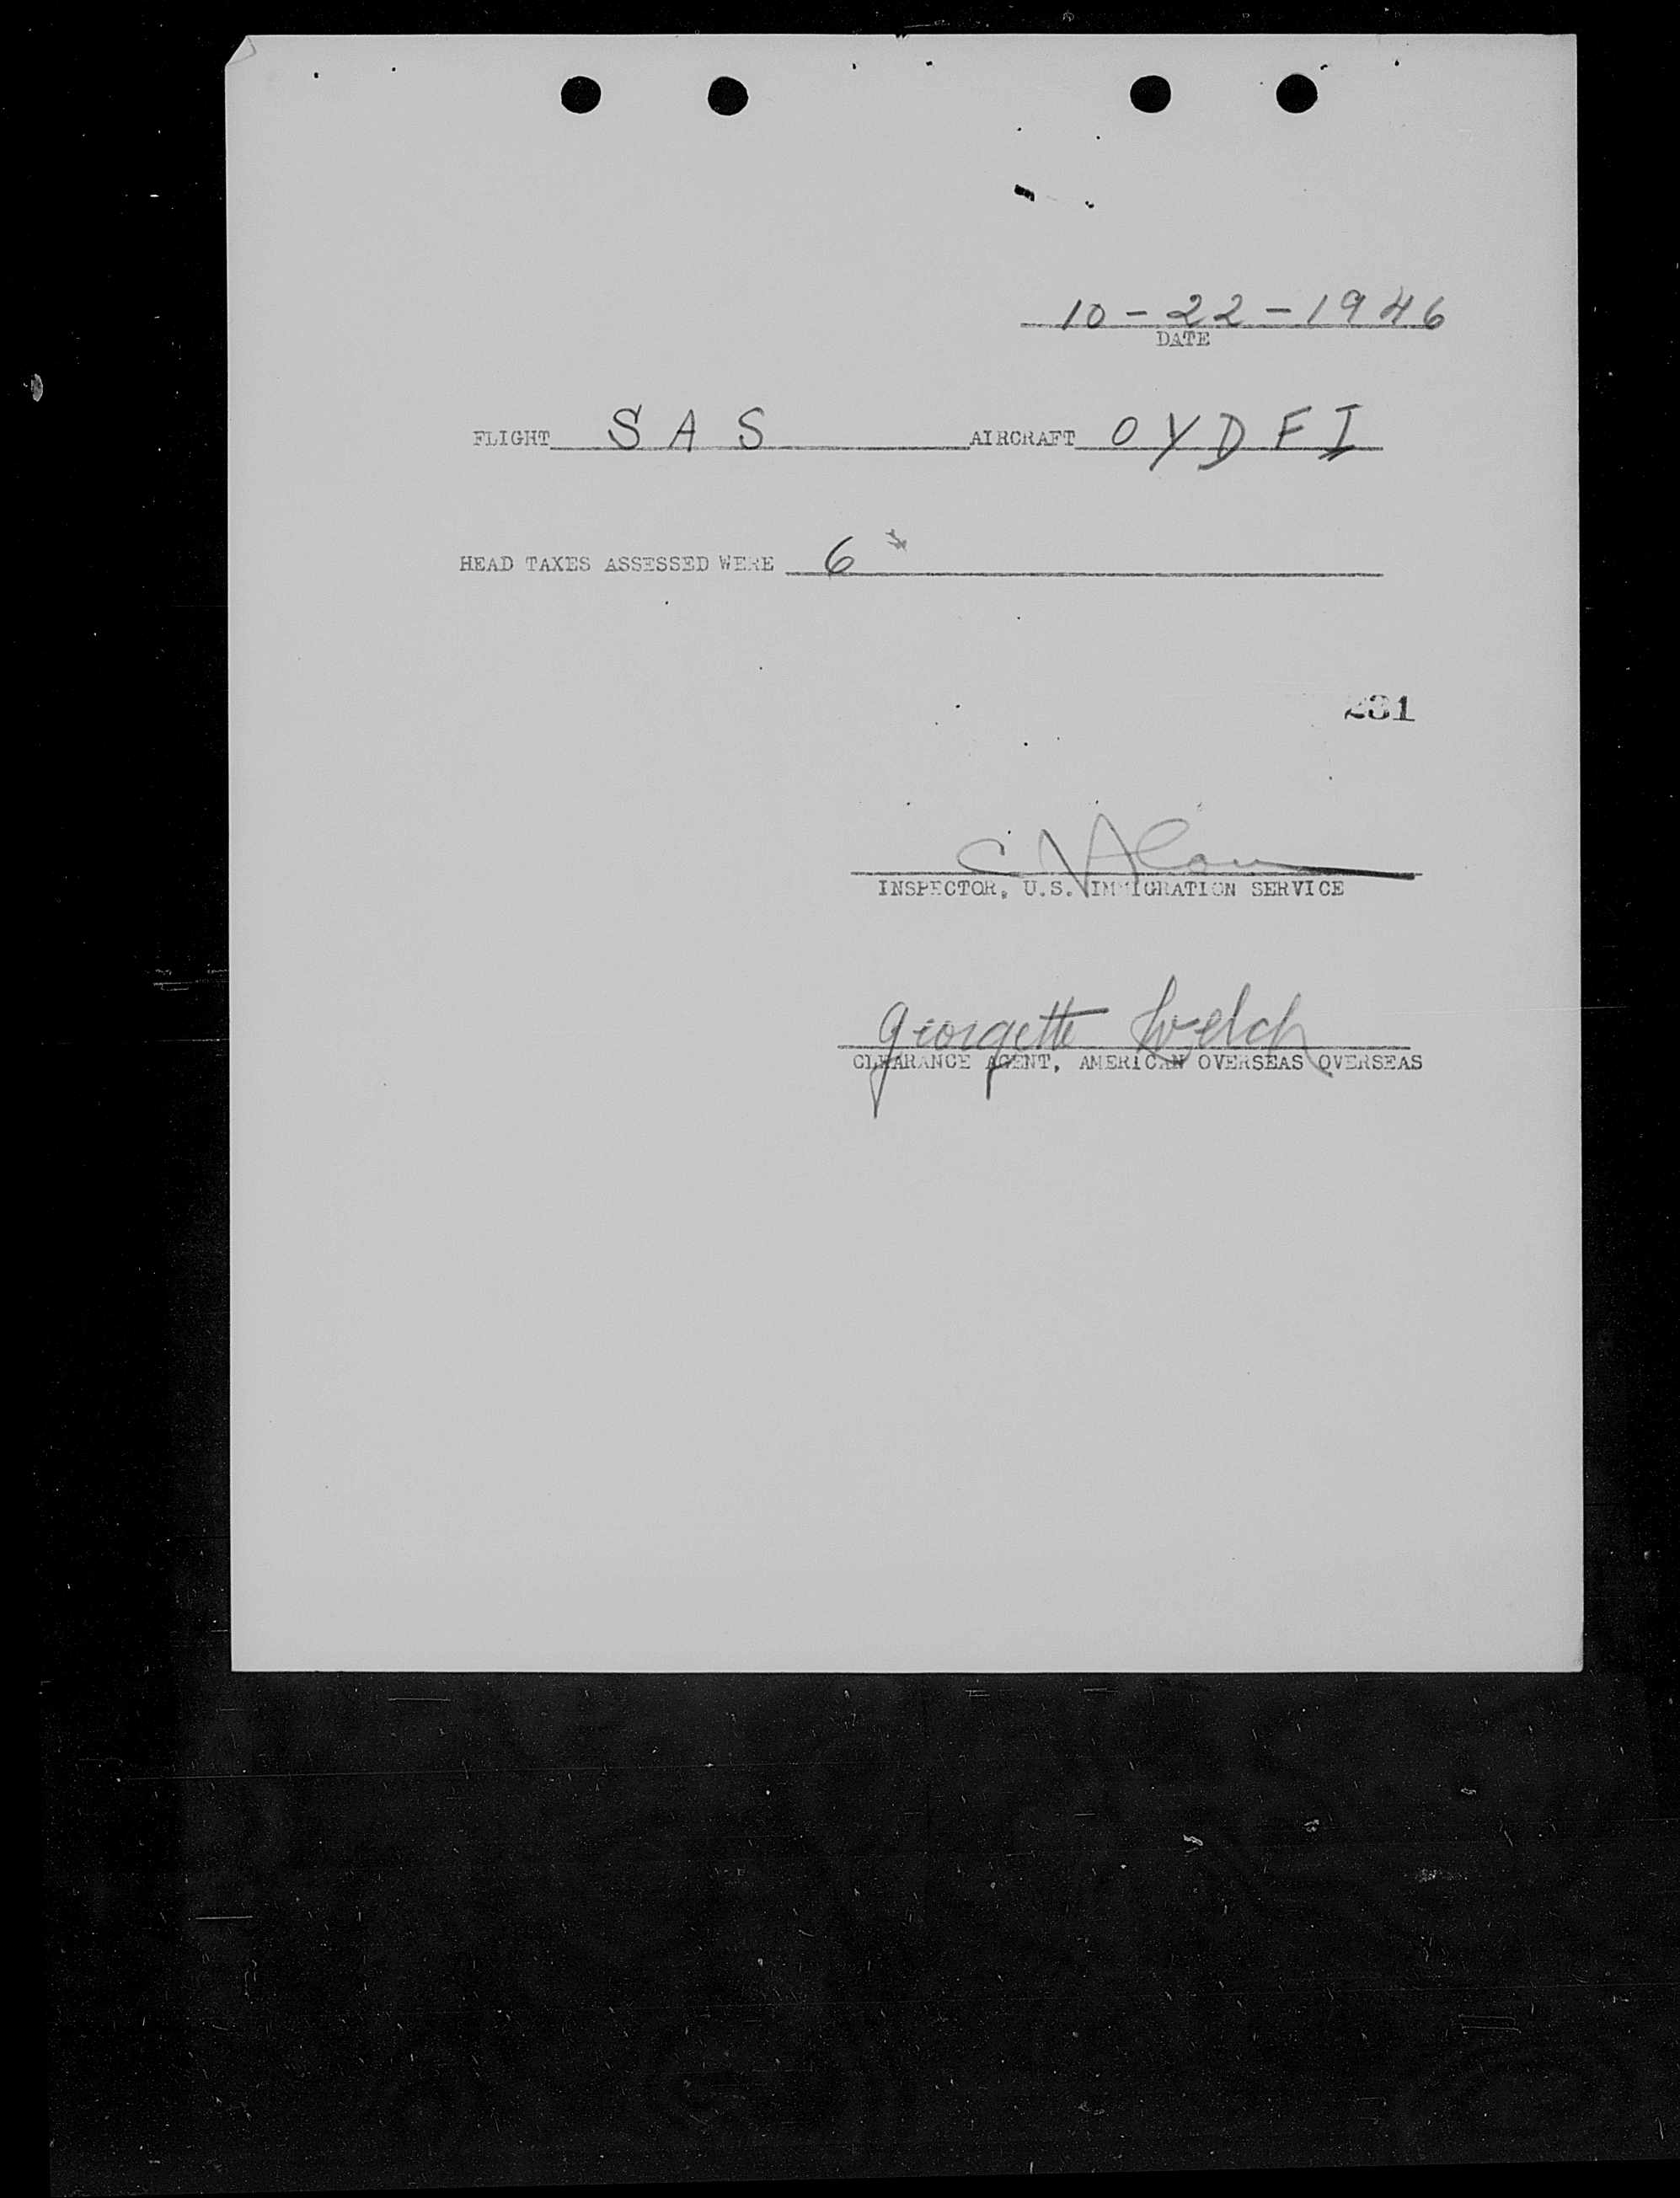 10-22-1946
DATE
FLIGHT SAS AIRCRAFT OYDFI
HEAD TAXES ASSESSED WERE 6
231
INSPECTOR, U.S. IMMIGRATION SERVICE
Georgette Welch
CLEARANCE AGENT, AMERICAN OVERSEAS OVERSEAS